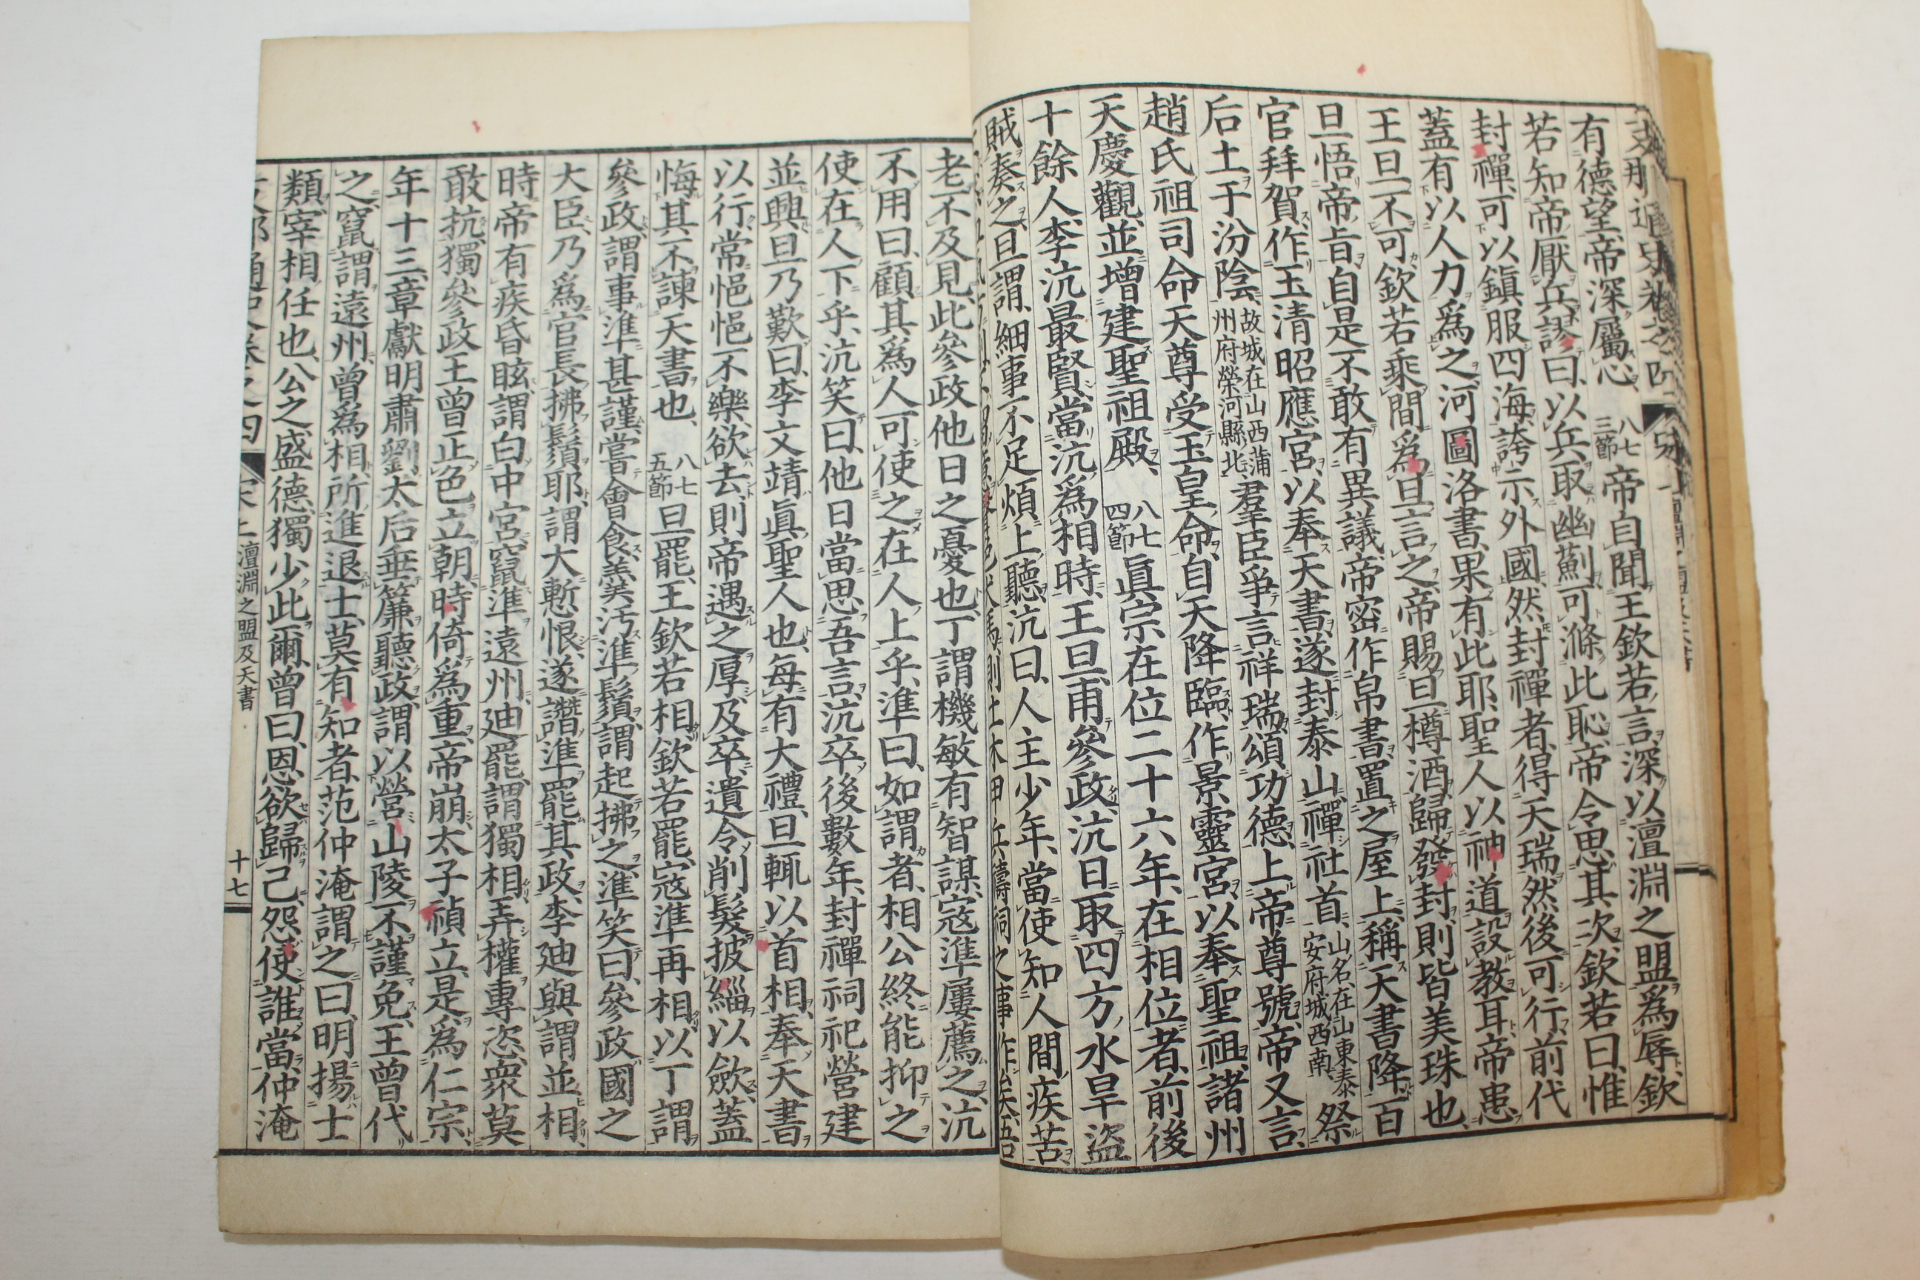 支那通史卷之四
有德望帝深屬心 八七三節 帝自聞王欽若言深以澶淵之盟爲辱欽
若知帝厭兵謬曰以兵取幽薊可滌此恥帝令思其次欽若曰惟
封禪可以鎭服四海誇示外國然封禪者得天瑞然後可行前代
蓋有以人力爲之河圖洛書果有此耶聖人以神道設教耳帝患
王旦不可欽若乘間爲旦言之帝賜旦樽酒歸發封則皆美珠也
旦悟帝旨自是不敢有異議帝密作帛書置之屋上稱天書降百
官拜賀作玉清昭應宮以奉天書遂封泰山禪社首 山名在山東泰安府城西南 祭
后土于汾陰 故城在山西蒲州府榮河縣北 羣臣爭言祥瑞頌功德上帝尊號帝又言
趙氏祖司命天尊受玉皇命自天降臨作景靈宮以奉聖祖諸州
天慶觀並增建聖祖殿 八七四節 眞宗在位二十六年在相位者前後
十餘人李沆最賢當沆爲相時王旦甫參政沆日取四方水旱盜
賊奏之旦謂細事不足煩上聽沆曰人主少年當使知人間疾苦
老不及見此參政他日之憂也丁謂機敏有智謀寇準屢薦之沆
不用曰顧其爲人可使之在人上乎準曰如謂者相公終能抑之
使在人下乎沆笑曰他日當思吾言沆卒後數年封禪祠祀營建
並興旦乃歎曰李文靖眞聖人也每有大禮旦輒以首相奉天書
以行常悒悒不樂欲去則帝遇之厚及卒遺令削髮披緇以斂蓋
悔其不諫天書也 八七五節 旦罷王欽若相欽若罷寇準再相以丁謂
參政謂事準甚謹嘗會食羹汚準鬚謂起拂之準笑曰參政國之
大臣乃爲官長拂鬚耶謂大慙恨遂譖準罷其政李迪與謂並相
時帝有疾昏眩謂白中宮竄準遠州迪罷謂獨相弄權專恣衆莫
敢抗獨參政王曾正色立朝時倚爲重帝崩太子禎立是爲仁宗
年十三章獻明肅劉太后垂簾聽政謂以營山陵不謹免王曾代
之竄謂遠州曾爲相所進退士莫有知者范仲淹謂之曰明揚士
類宰相任也公之盛德獨少此爾曾曰恩欲歸己怨使誰當仲淹
宋上 澶淵之盟及天書
十七